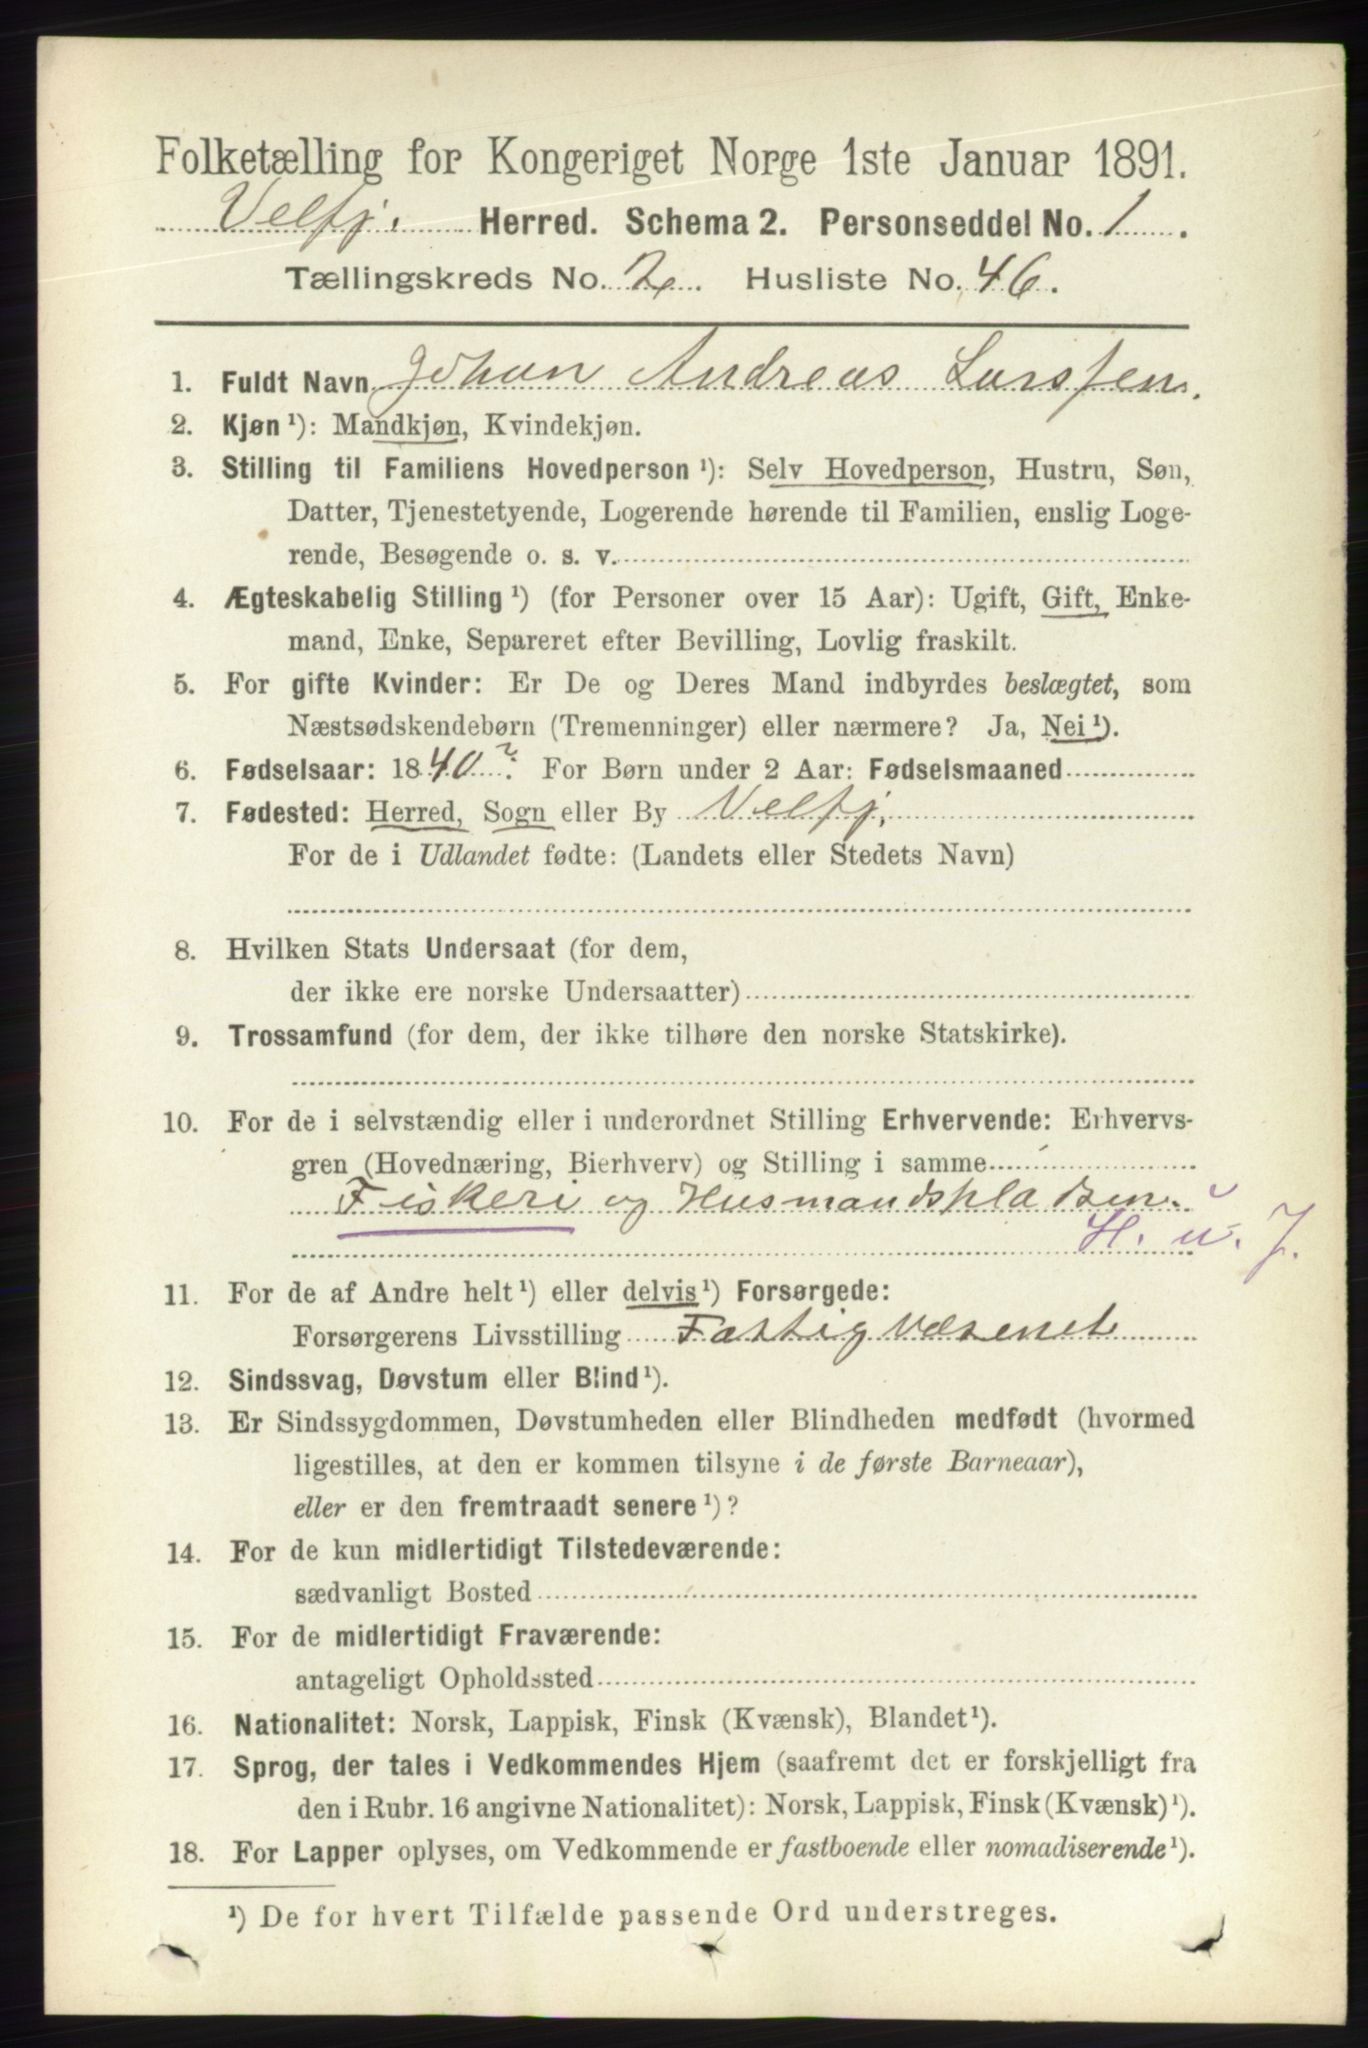 Folketælling for Kongeriget Norge 1ste Januar 1891.
Velfj. Herred. Schema 2. Personseddel No. 1.
Tællingskreds No. 2. Husliste No. 46.
1. Fuldt Navn Johan Andreas Larssen.
2. Kjøn ¹): Mandkjøn, Kvindekjøn.
3. Stilling til Familiens Hovedperson ¹): Selv Hovedperson, Hustru, Søn,
Datter, Tjenestetyende, Logerende hørende til Familien, enslig Loge-
rende, Besøgende o. s. v.
4. Ægteskabelig Stilling ¹) (for Personer over 15 Aar): Ugift, Gift, Enke-
mand, Enke, Separeret efter Bevilling, Lovlig fraskilt.
5. For gifte Kvinder: Er De og Deres Mand indbyrdes beslægtet, som
Næstsødskendebørn (Tremenninger) eller nærmere? Ja, Nei ¹).
6. Fødselsaar: 1840?. For Børn under 2 Aar: Fødselsmaaned
7. Fødested: Herred, Sogn eller By Velfj.
For de i Udlandet fødte: (Landets eller Stedets Navn)
8. Hvilken Stats Undersaat (for dem,
der ikke ere norske Undersaatter)
9. Trossamfund (for dem, der ikke tilhøre den norske Statskirke).
10. For de i selvstændig eller i underordnet Stilling Erhvervende: Erhvervs-
gren (Hovednæring, Bierhverv) og Stilling i samme
Fiskeri og Husmandspladsen.
H. u. J.
11. For de af Andre helt ¹) eller delvis ¹) Forsørgede:
Forsørgerens Livsstilling Fattigvæsenet
12. Sindssvag, Døvstum eller Blind ¹).
13. Er Sindssygdommen, Døvstumheden eller Blindheden medfødt (hvormed
ligestilles, at den er kommen tilsyne i de første Barneaar),
eller er den fremtraadt senere ¹)?
14. For de kun midlertidigt Tilstedeværende:
sædvanligt Bosted
15. For de midlertidigt Fraværende:
antageligt Opholdssted
16. Nationalitet: Norsk, Lappisk, Finsk (Kvænsk), Blandet ¹).
17. Sprog, der tales i Vedkommendes Hjem (saafremt det er forskjelligt fra
den i Rubr. 16 angivne Nationalitet): Norsk, Lappisk, Finsk (Kvænsk) ¹).
18. For Lapper oplyses, om Vedkommende er fastboende eller nomadiserende ¹).
¹) De for hvert Tilfælde passende Ord understreges.